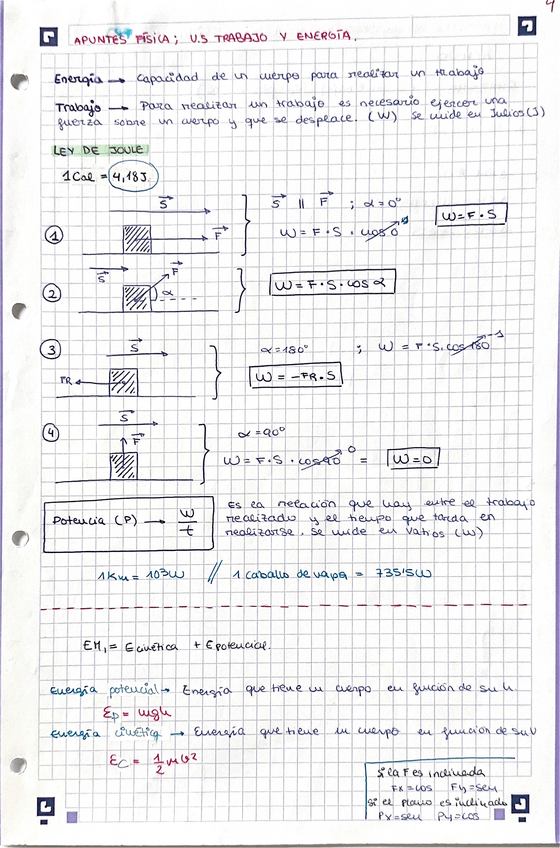 4
APUNTES FÍSICA; U.5 TRABAJO Y ENERGÍA.
Energía → Capacidad de un cuerpo para realizar un trabajo
Trabajo → Para realizar un trabajo es necesario ejercer una
fuerza sobre un cuerpo y que se desplace. (W) Se mide en Julios (J)
LEY DE JOULE
1 Cal = 4,18J.
S
S || F ; α=0°
W=F·S
1
F
W = F·S · cos 0
S
F
2
α
W=F·S·cos α
3
S
α=180° ; W = F·S·cos 180 -1
FR
W=-FR·S
S
4
F
α=90°
W=F·S·cos 90 0 = W=0
Es la relación que hay entre el trabajo
Potencia (P) → W/t
realizado y el tiempo que tarda en
realizarse. Se mide en Vatios (W)
1Kw = 103W // 1 caballo de vapor = 735'5W
EM₁ = Ecinética + Epotencial.
Energía potencial → Energía que tiene un cuerpo en función de su h
Ep = mgh
Energía cinética → Energía que tiene un cuerpo en función de su V
Ec = 1/2 m v²
Si la F es inclinada
Fx=cos Fy=sen
Si el plano es inclinado
Px=sen Py=cos